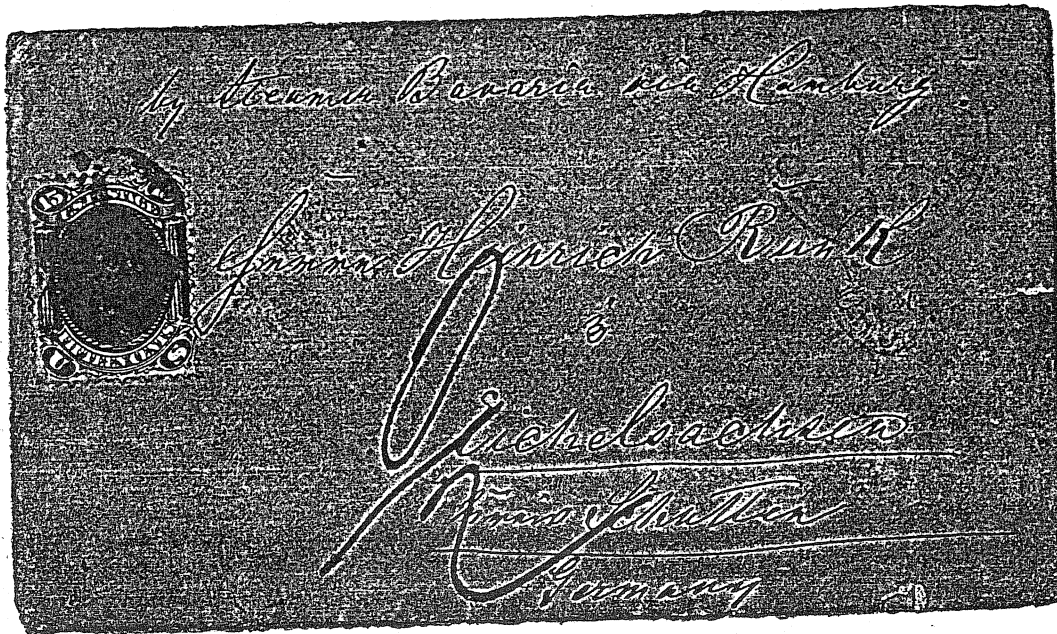 by steamer Bavaria via Hamburg
U.S. POSTAGE
15
FIFTEEN CENTS
U S
Heinrich Runk
Eichelsachsen
Schotten
Germany